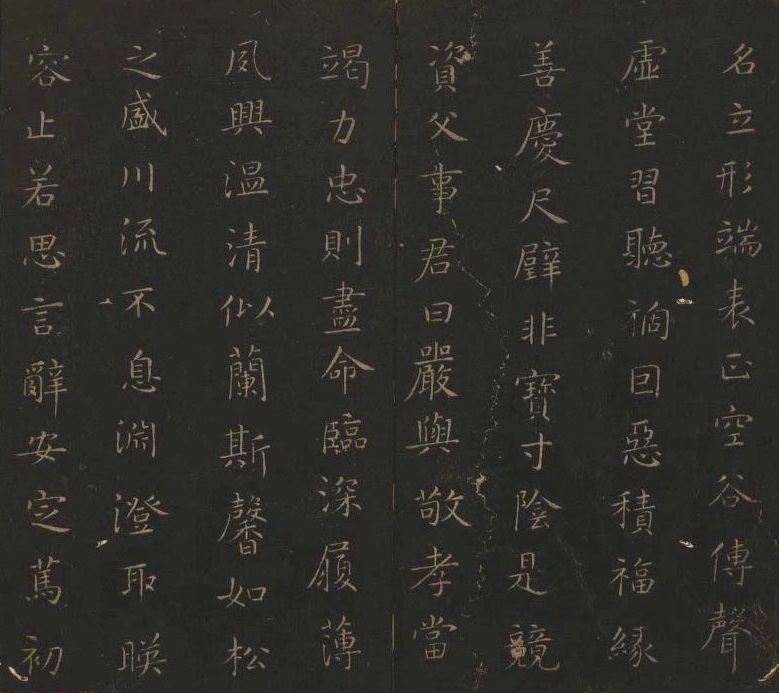 名立形端表正空谷傳聲
虛堂習聽禍因惡積福緣
善慶尺璧非寶寸陰是競
資父事君曰嚴與敬孝當
竭力忠則盡命臨深履薄
夙興温凊似蘭斯馨如松
之盛川流不息淵澄取暎
容止若思言辭安定篤初